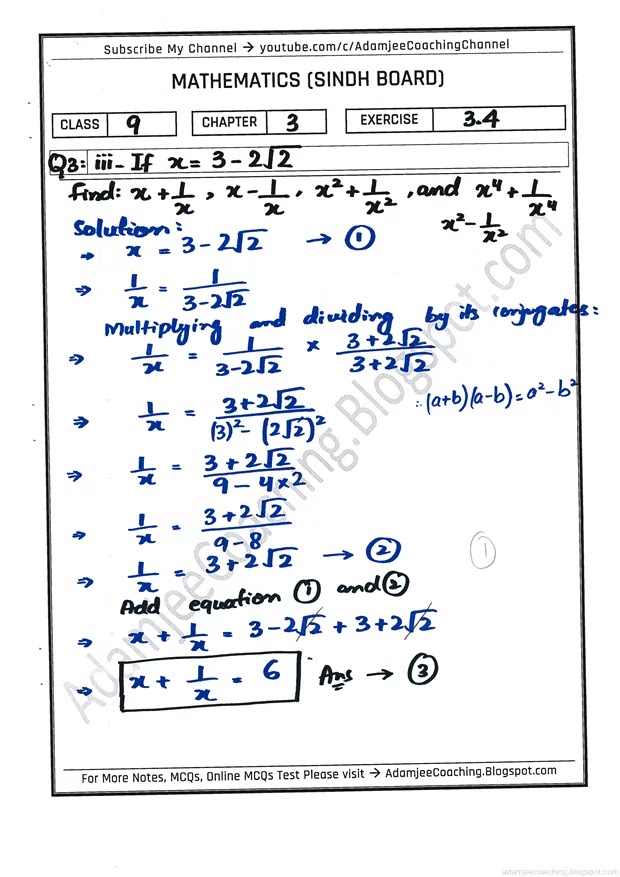 Subscribe My Channel → youtube.com/c/AdamjeeCoachingChannel
MATHEMATICS (SINDH BOARD)
CLASS 9 CHAPTER 3 EXERCISE 3.4
Q3: iii- If x = 3 - 2√2
Find: x + 1/x , x - 1/x , x² + 1/x² , and x⁴ + 1/x⁴
x² - 1/x²
Solution:
⇒ x = 3 - 2√2 → ①
⇒ 1/x = 1/(3 - 2√2)
Multiplying and dividing by its conjugates:
⇒ 1/x = 1/(3 - 2√2) × (3 + 2√2)/(3 + 2√2)
⇒ 1/x = (3 + 2√2)/((3)² - (2√2)²) ∴ (a+b)(a-b) = a² - b²
⇒ 1/x = (3 + 2√2)/(9 - 4×2)
⇒ 1/x = (3 + 2√2)/(9 - 8)
⇒ 1/x = 3 + 2√2 → ②
①
Add equation ① and ②
⇒ x + 1/x = 3 - 2√2 + 3 + 2√2
⇒ x + 1/x = 6 Ans → ③
AdamjeeCoaching.Blogspot.com
For More Notes, MCQs, Online MCQs Test Please visit → AdamjeeCoaching.Blogspot.com
adamjeecoaching.blogspot.com